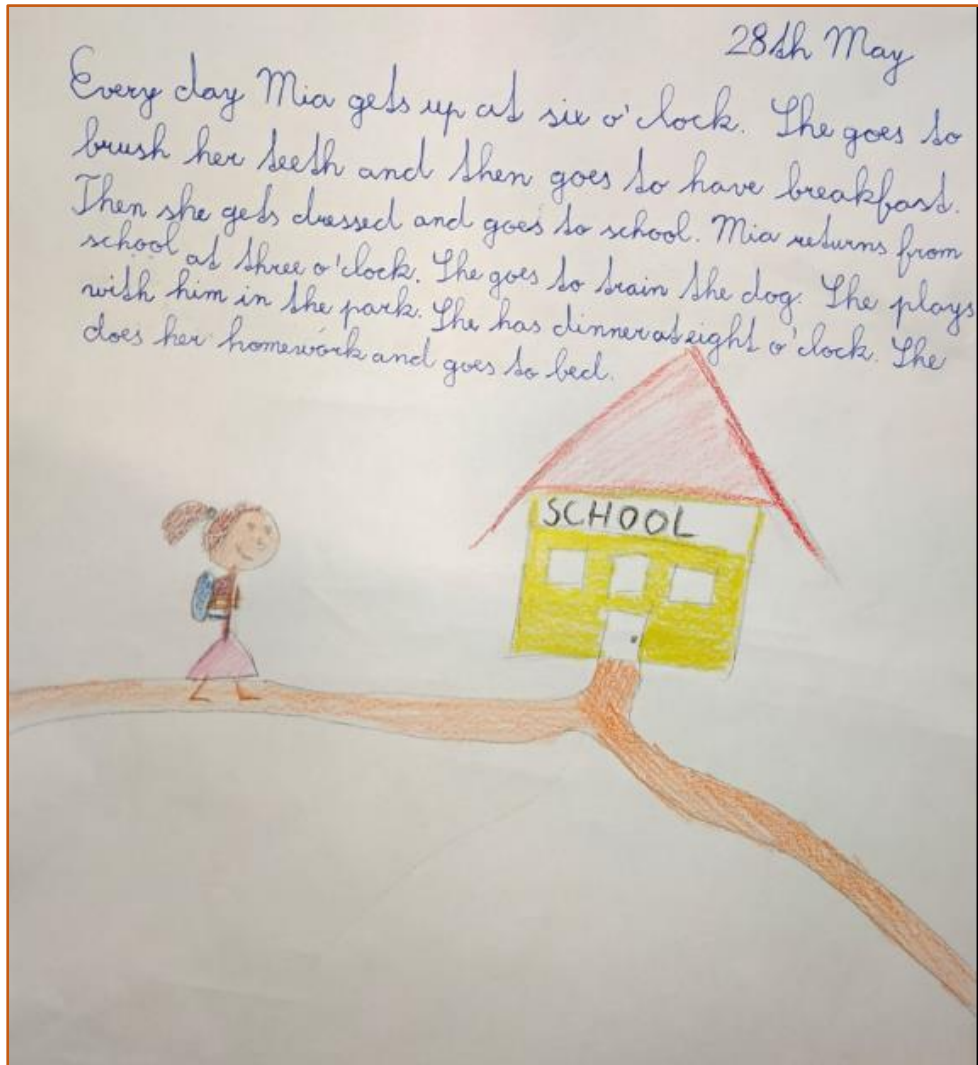 28th May
Every day Mia gets up at six o'clock. She goes to
brush her teeth and then goes to have breakfast.
Then she gets dressed and goes to school. Mia returns from
school at three o'clock. She goes to train the dog. She plays
with him in the park. She has dinner at eight o'clock. She
does her homework and goes to bed.
SCHOOL